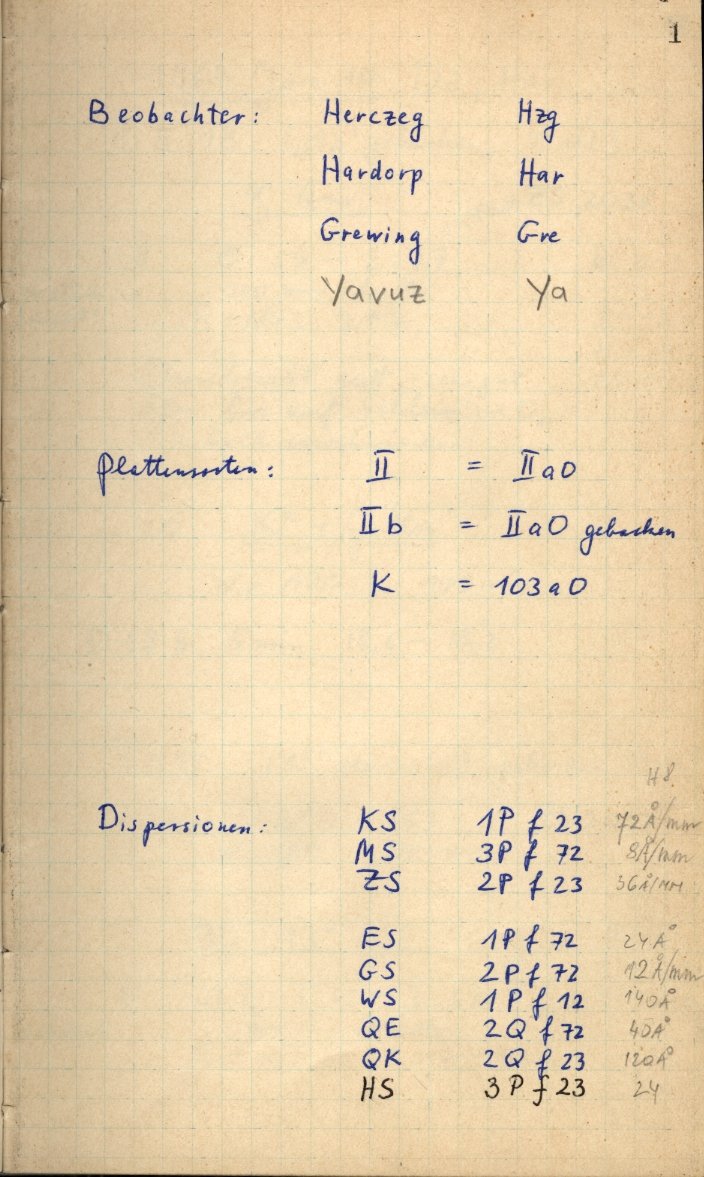 1
Beobachter: Herczeg Hzg
Hardorp Har
Grewing Gre
Yavuz Ya
Plattensorten: II = IIaO
IIb = IIaO gebacken
K = 103aO
Hδ
Dispersionen: KS 1P f 23 72Å/mm
MS 3P f 72 8Å/mm
ZS 2P f 23 36Å/mm
ES 1P f 72 24Å
GS 2P f 72 12Å/mm
WS 1P f 12 140Å
QE 2Q f 72 40Å
QK 2Q f 23 120Å
HS 3P f 23 24